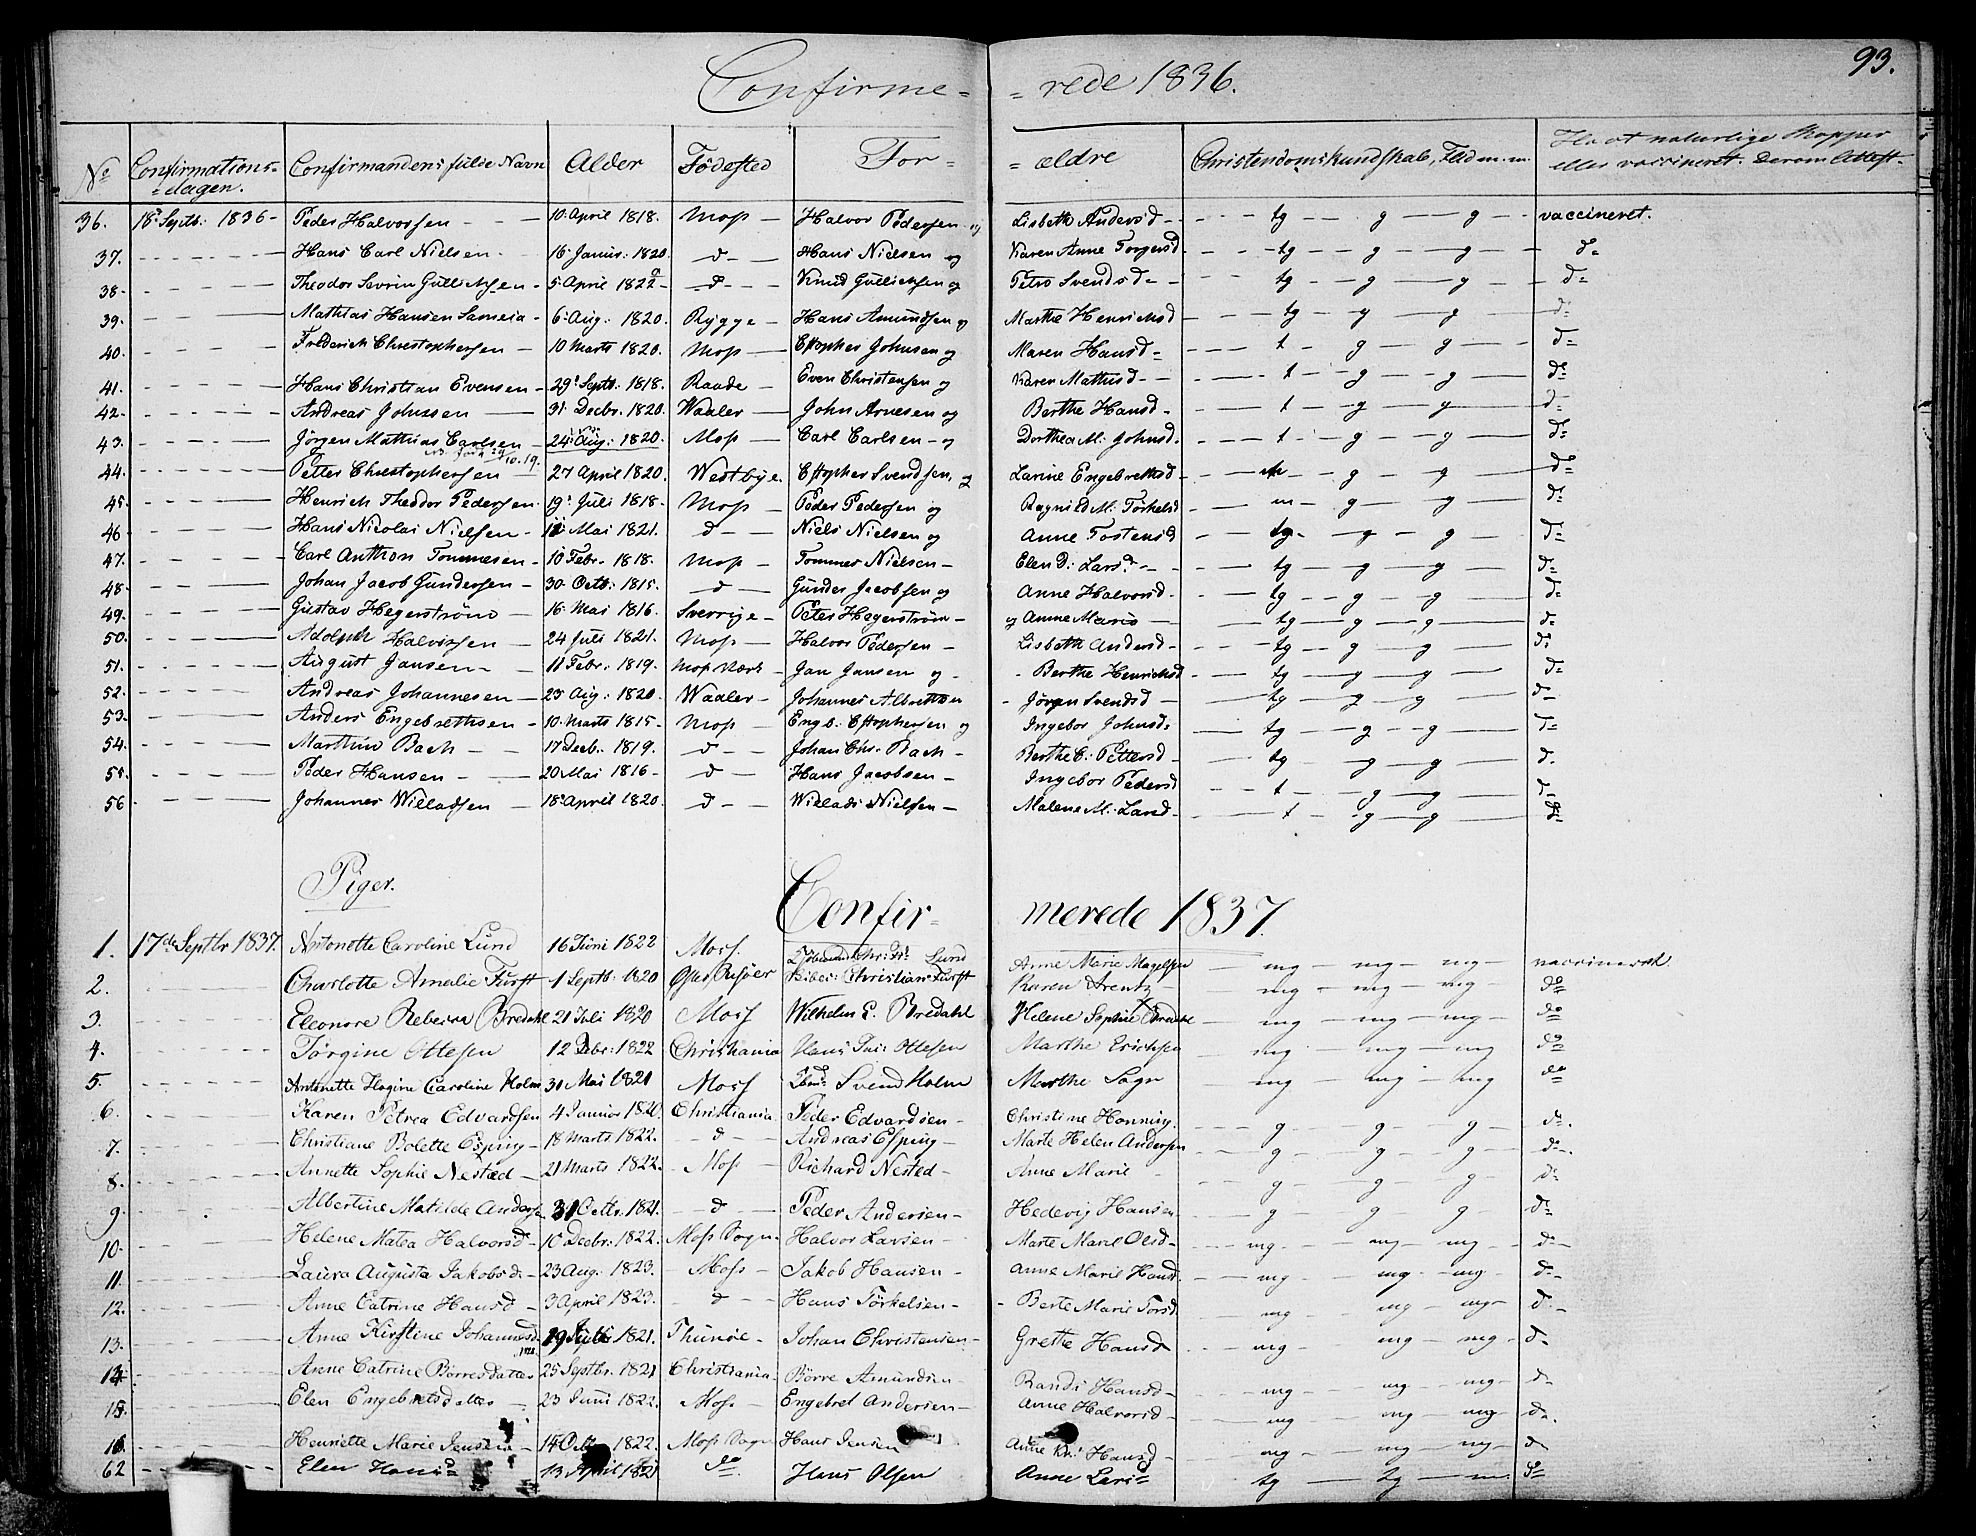 93.
Confirme= =rede 1836.
No Confirmations=dagen. Confirmandens fulde Navn Alder Fødested For= =ældre Christendomskundskab, Flid m.m. Havt naturlige Kopper eller vaccineret. Derom Attest.
36. 18de Septb: 1836 - Peder Halvorsen - 10 April 1818. Moss - Halvor Pedersen og Lisbeth Andersd - tg - g - g - vaccineret.
37. Hans Carl Nielsen - 16 Januar: 1820. d - Hans Nielsen og Karen Anne Torgersd - tg - g - g - d=
38. Theodor Severin Gullichsen - 5 April 1822 - d - Knud Gullichsen og Petro Svendsd - tg - g - g - d=
39. Mathias Hansen Sameia - 6 Aug: 1820. Rygge - Hans Amundsen og Marthe Henrichsd - tg - g - g - d=
40. Frederich Christophersen - 10 Marts 1820. Moss - Chstopher Johnsen og Maren Hansd - t - g - g - d=
41. Hans Christian Evensen - 29 Septb: 1818. Raade - Even Christensen og Karen Mathisd - t - g - g - d=
42. Andreas Johnsen - 31 Decbr. 1820. Waaler - John Arnesen og Berthe Hansd - t - g - g - d=
43. Jørgen Mathias Carlsen - 24 Aug: 1820. Moss - Carl Carlsen - og Dorthea M: Johnsd. - t - g - g - d=
44. Petter Christophersen 27 April 1820. Westbye. Chstopher Svendsen, og Larine Engebrethsd - g - g - d=
45. Henrich Theodor Pedersen 19 Juli 1818. Moss - Peder Pedersen og Ragnild M. Torkelsd - m - g - g - d=
46. Hans Nicolai Nielsen - Mai 1821. d - Niels Nielsen og Anne Tostensd - tg - g - g - d=
47. Carl Anthon Tommesen - 10 Febr. 1818. Moss - Tommes Nielsen - Elen D: Larsd - tg - g - g - d=
48. Johan Jacob Gundersen - 30 Octb: 1815. d - Gunder Jacobsen og Anne Halvorsd - tg - g - g - d=
49. Gustav Hegerstrøm - 16 Mai 1816. Sverrige - Peter Hegerstrøm - og Anne Marie - tg - g - g - d=
50. Adolph Halvorsen - 24 Juli 1821. Moss - Halvor Pedersen - Lisbeth Andersd - tg - g - g - d=
51. August Jansen - 11 Febr: 1819. Moss Værk - Jan Jansen og - Berthe Henrichsd - tg - g - g - d=
52. Andreas Johannesen - 23 Aug: 1820. Waaler - Johannes Albretsen - Jørgen Svendsd - tg - g - g - d=
53. Anders Engebrethsen - 10 Marts 1815 - Moss - Engb. Chstophersen og Ingebor Johnsd - tg - g - g - d=
54. Marthin Bach - 17 Decb. 1819. d - Johan Chr. Bach - Berthe C: Pettersd - tg - g - g - d.
55. Peder Hansen - 20 Mai 1816 - d - Hans Jacobsen - Ingebor Pedersd - t - g - g - d=
56 Johannes Willadsen - 18 April 1820. d - Willads Nielsen - Malene M: Larsd - t - g - g - d=
Piger. Confir= merede 1837.
1. 17de Septbr 1837. Antonette Caroline Lund 16 Juni 1822 Moss. Chr: Fr: Lund Anne Marie Magelssen mg - mg - mg - vaccineret.
2. Charlotte Amalie Fürst - 1 Septb: 1820 Christian Fürst Karen Arentz - mg - mg - mg - do
3. Eleonore Rebecca Bredahl 21 Juli 1820 Moss Wilhelm E. Bredahl Helene Sophie Bredahl - mg - mg - mg - do
4. Jørgine Ottesen 12 Debr: 1822 Christiania Hans Ottesen Marthe Erichsen - mg - mg - mg - do
5. Antonette Hagine Caroline Holm 31 Mai 1821 Moss Svend Holm Marthe Sogn - mg - mg - mg do
6. Karen Petrea Edvardsen 4 Januar 1820. Christiania. Peder Edvardsen - Christine Honning. - g - g - g - d=.
7. Christiane Bolette Esping - 18 Marts 1822. - d - Andreas Esping - Marte Helen Andersen g - g - g - d=.
8. Annette Sophie Nested - 21 Marts 1822. - Moss - Richard Nested - Anne Marie - g - g - g - d=
9. Albertine Matilde Andersen 31 Octbr. 1821. - d - Peder Andersen - Hedevig Hansen g - g - g - d=
10. Helene Matea Halvorsd - 10 Decbr. 1822. Moss Sogn. Halvor Larsen - Marte Marie Olsd - mg - mg - mg - d=
11. Laura Augusta Jakobsd - 23 Aug. 1823. - Moss - Jakob Hansen - Anne Marie Hansd - mg - mg - mg - d=
12. Anne Catrine Hansd - 3 April 1823. - d - Hans Torkelsen - Berte Marie Torsd mg - mg - mg - d=
13. Anne Kirstine Johannesd. 1821. Thunøe - Johan Christensen - Grette Hansd - mg - mg - mg - d=
14 Anne Catrine Børresdatter 25 Septbr. 1821 Christiania - Børre Amundsen - Randi Hansd - mg - mg - mg - d=
15. Elen Engebretsdatter - 23 Juni 1822. - Moss - Engebret Andersen - Anne Halvorsd - mg - mg - mg - d=.
16. Henriette Marie Jensen - 14 Octbr 1822. Moss Sogn Hans Jensen Anne Kh: Hansd - mg - mg - mg - d=
62 Elen Hansd= 13 April 1821 do Hans Olsen Anne Larsd= tg - tg - m - d=